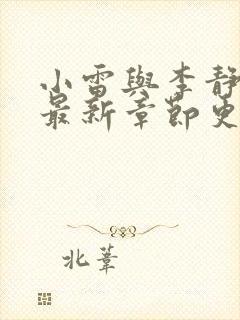 小雷與李靜
最新章節更
北葦